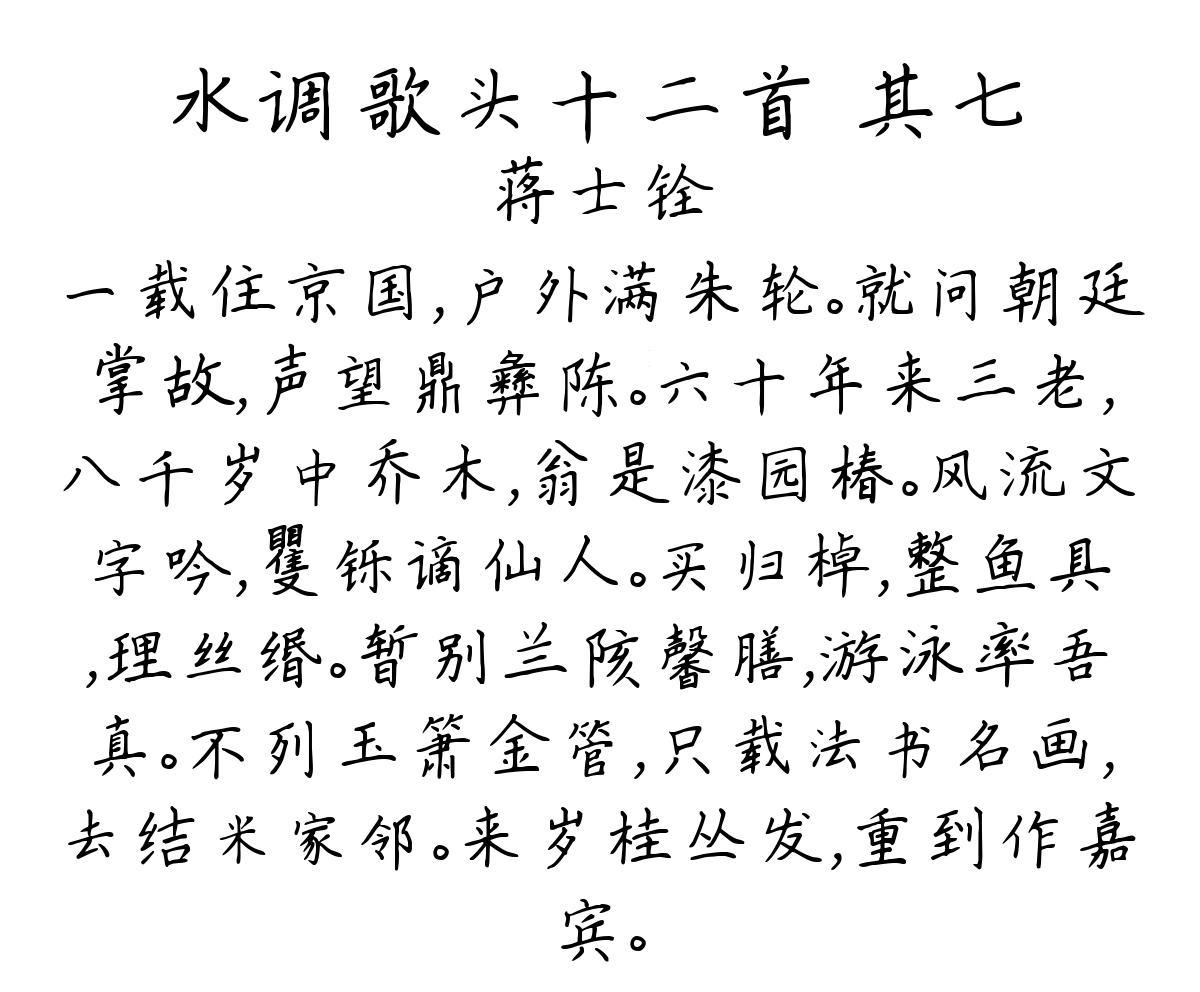 水调歌头十二首 其七
蒋士铨
一载住京国,户外满朱轮。就问朝廷
掌故,声望鼎彝陈。六十年来三老,
八千岁中乔木,翁是漆园椿。风流文
字吟,矍铄谪仙人。买归棹,整鱼具
,理丝缗。暂别兰陔馨膳,游泳率吾
真。不列玉箫金管,只载法书名画,
去结米家邻。来岁桂丛发,重到作嘉
宾。